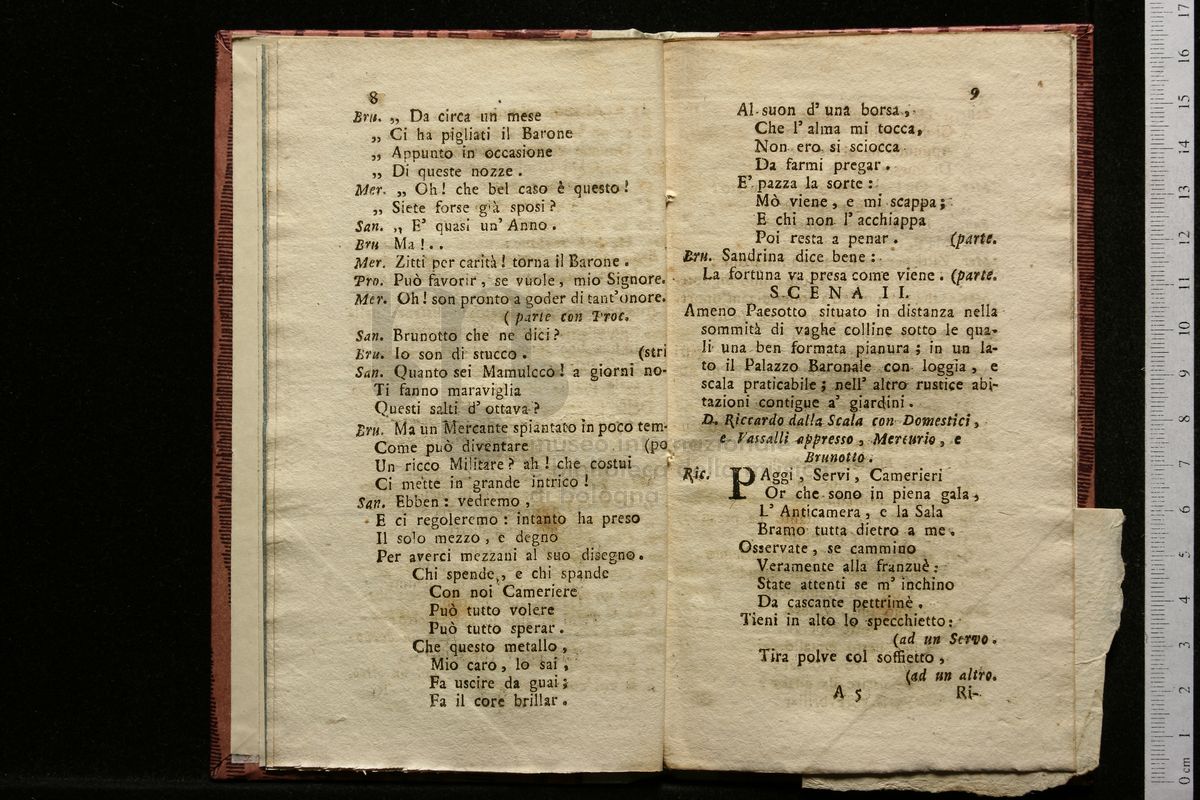 8
Bru. „ Da circa un mese
„ Ci ha pigliati il Barone
„ Appunto in occasione
„ Di queste nozze.
Mer. „ Oh! che bel caso è questo!
„ Siete forse già sposi?
San. „ E' quasi un' Anno.
Bru Ma!..
Mer. Zitti per carità! torna il Barone.
Pro. Può favorir, se vuole, mio Signore.
Mer. Oh! son pronto a goder di tant'onore.
( parte con Proc.
San. Brunotto che ne dici?
Bru. Io son di stucco. (stri
San. Quanto sei Mamulcco! a giorni no-
Ti fanno maraviglia
Questi salti d'ottava?
Bru. Ma un Mercante spiantato in poco tem-
Come può diventare (po
Un ricco Militare? ah! che costui
Ci mette in grande intrico!
San. Ebben: vedremo,
E ci regoleremo: intanto ha preso
Il solo mezzo, e degno
Per averci mezzani al suo disegno.
Chi spende, e chi spande
Con noi Cameriere
Può tutto volere
Può tutto sperar.
Che questo metallo,
Mio caro, lo sai,
Fa uscire da guai;
Fa il core brillar.
9
Al suon d' una borsa,
Che l' alma mi tocca,
Non ero si sciocca
Da farmi pregar.
E' pazza la sorte:
Mò viene, e mi scappa;
E chi non l' acchiappa
Poi resta a penar. (parte.
Bru. Sandrina dice bene:
La fortuna va presa come viene. (parte.
SCENA II.
Ameno Paesotto situato in distanza nella
sommità di vaghe colline sotto le qua-
li una ben formata pianura; in un la-
to il Palazzo Baronale con loggia, e
scala praticabile; nell' altro rustice abi-
tazioni contigue a' giardini.
D. Riccardo dalla Scala con Domestici,
e Vassalli appresso, Mercurio, e
Brunotto.
Ric. PAggi, Servi, Camerieri
Or che sono in piena gala,
L' Anticamera, e la Sala
Bramo tutta dietro a me.
Osservate, se cammino
Veramente alla franzuè:
State attenti se m' inchino
Da cascante pettrimè.
Tieni in alto lo specchietto:
(ad un Servo.
Tira polve col soffietto,
(ad un altro.
A 5 Ri-
museo internazionale
di bologna
0 cm 1 2 3 4 5 6 7 8 9 10 11 12 13 14 15 16 17